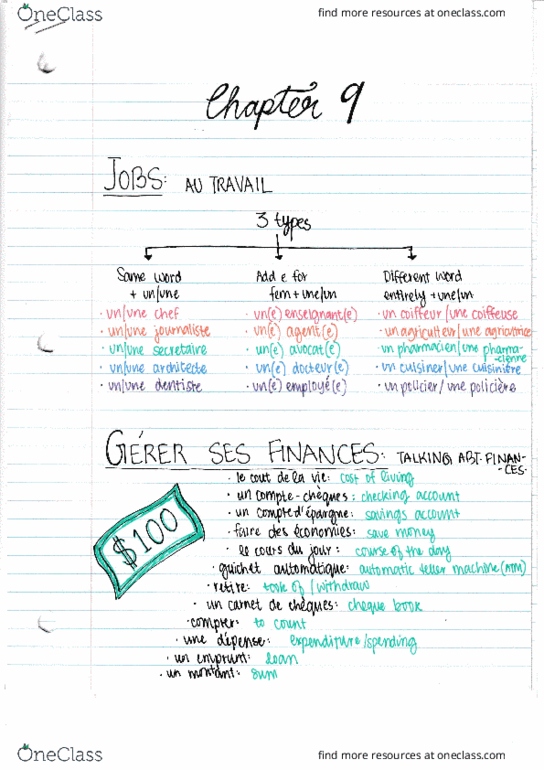 OneClass
find more resources at oneclass.com
Chapter 9
JOBS: AU TRAVAIL
3 types
Same word
+ un/une
· un/une chef
· un/une journaliste
· un/une secretaire
· un/une architecte
· un/une dentiste
Add e for
fem + une/un
· un(e) enseignant(e)
· un(e) agent(e)
· un(e) avocat(e)
· un(e) docteur(e)
· un(e) employé(e)
Different word
entirely + une/un
· un coiffeur/une coiffeuse
· un agriculteur/une agricultrice
· un pharmacien/une pharma-
-cienne
· un cuisiner/une cuisinière
· un policier/une policière
GÉRER SES FINANCES: TALKING ABT FINAN-
-CES.
$100
· le cout de la vie: cost of living
· un compte-chèques: checking account
· un compte d'épargne: savings account
· faire des économies: save money
· le cours du jour: course of the day
· guichet automatique: automatic teller machine (ATM)
· retire: took of/withdraw
· un carnet de chèques: cheque book
· compter: to count
· une dépense: expenditure/spending
· un emprunt: loan
· un montant: sum
OneClass
find more resources at oneclass.com